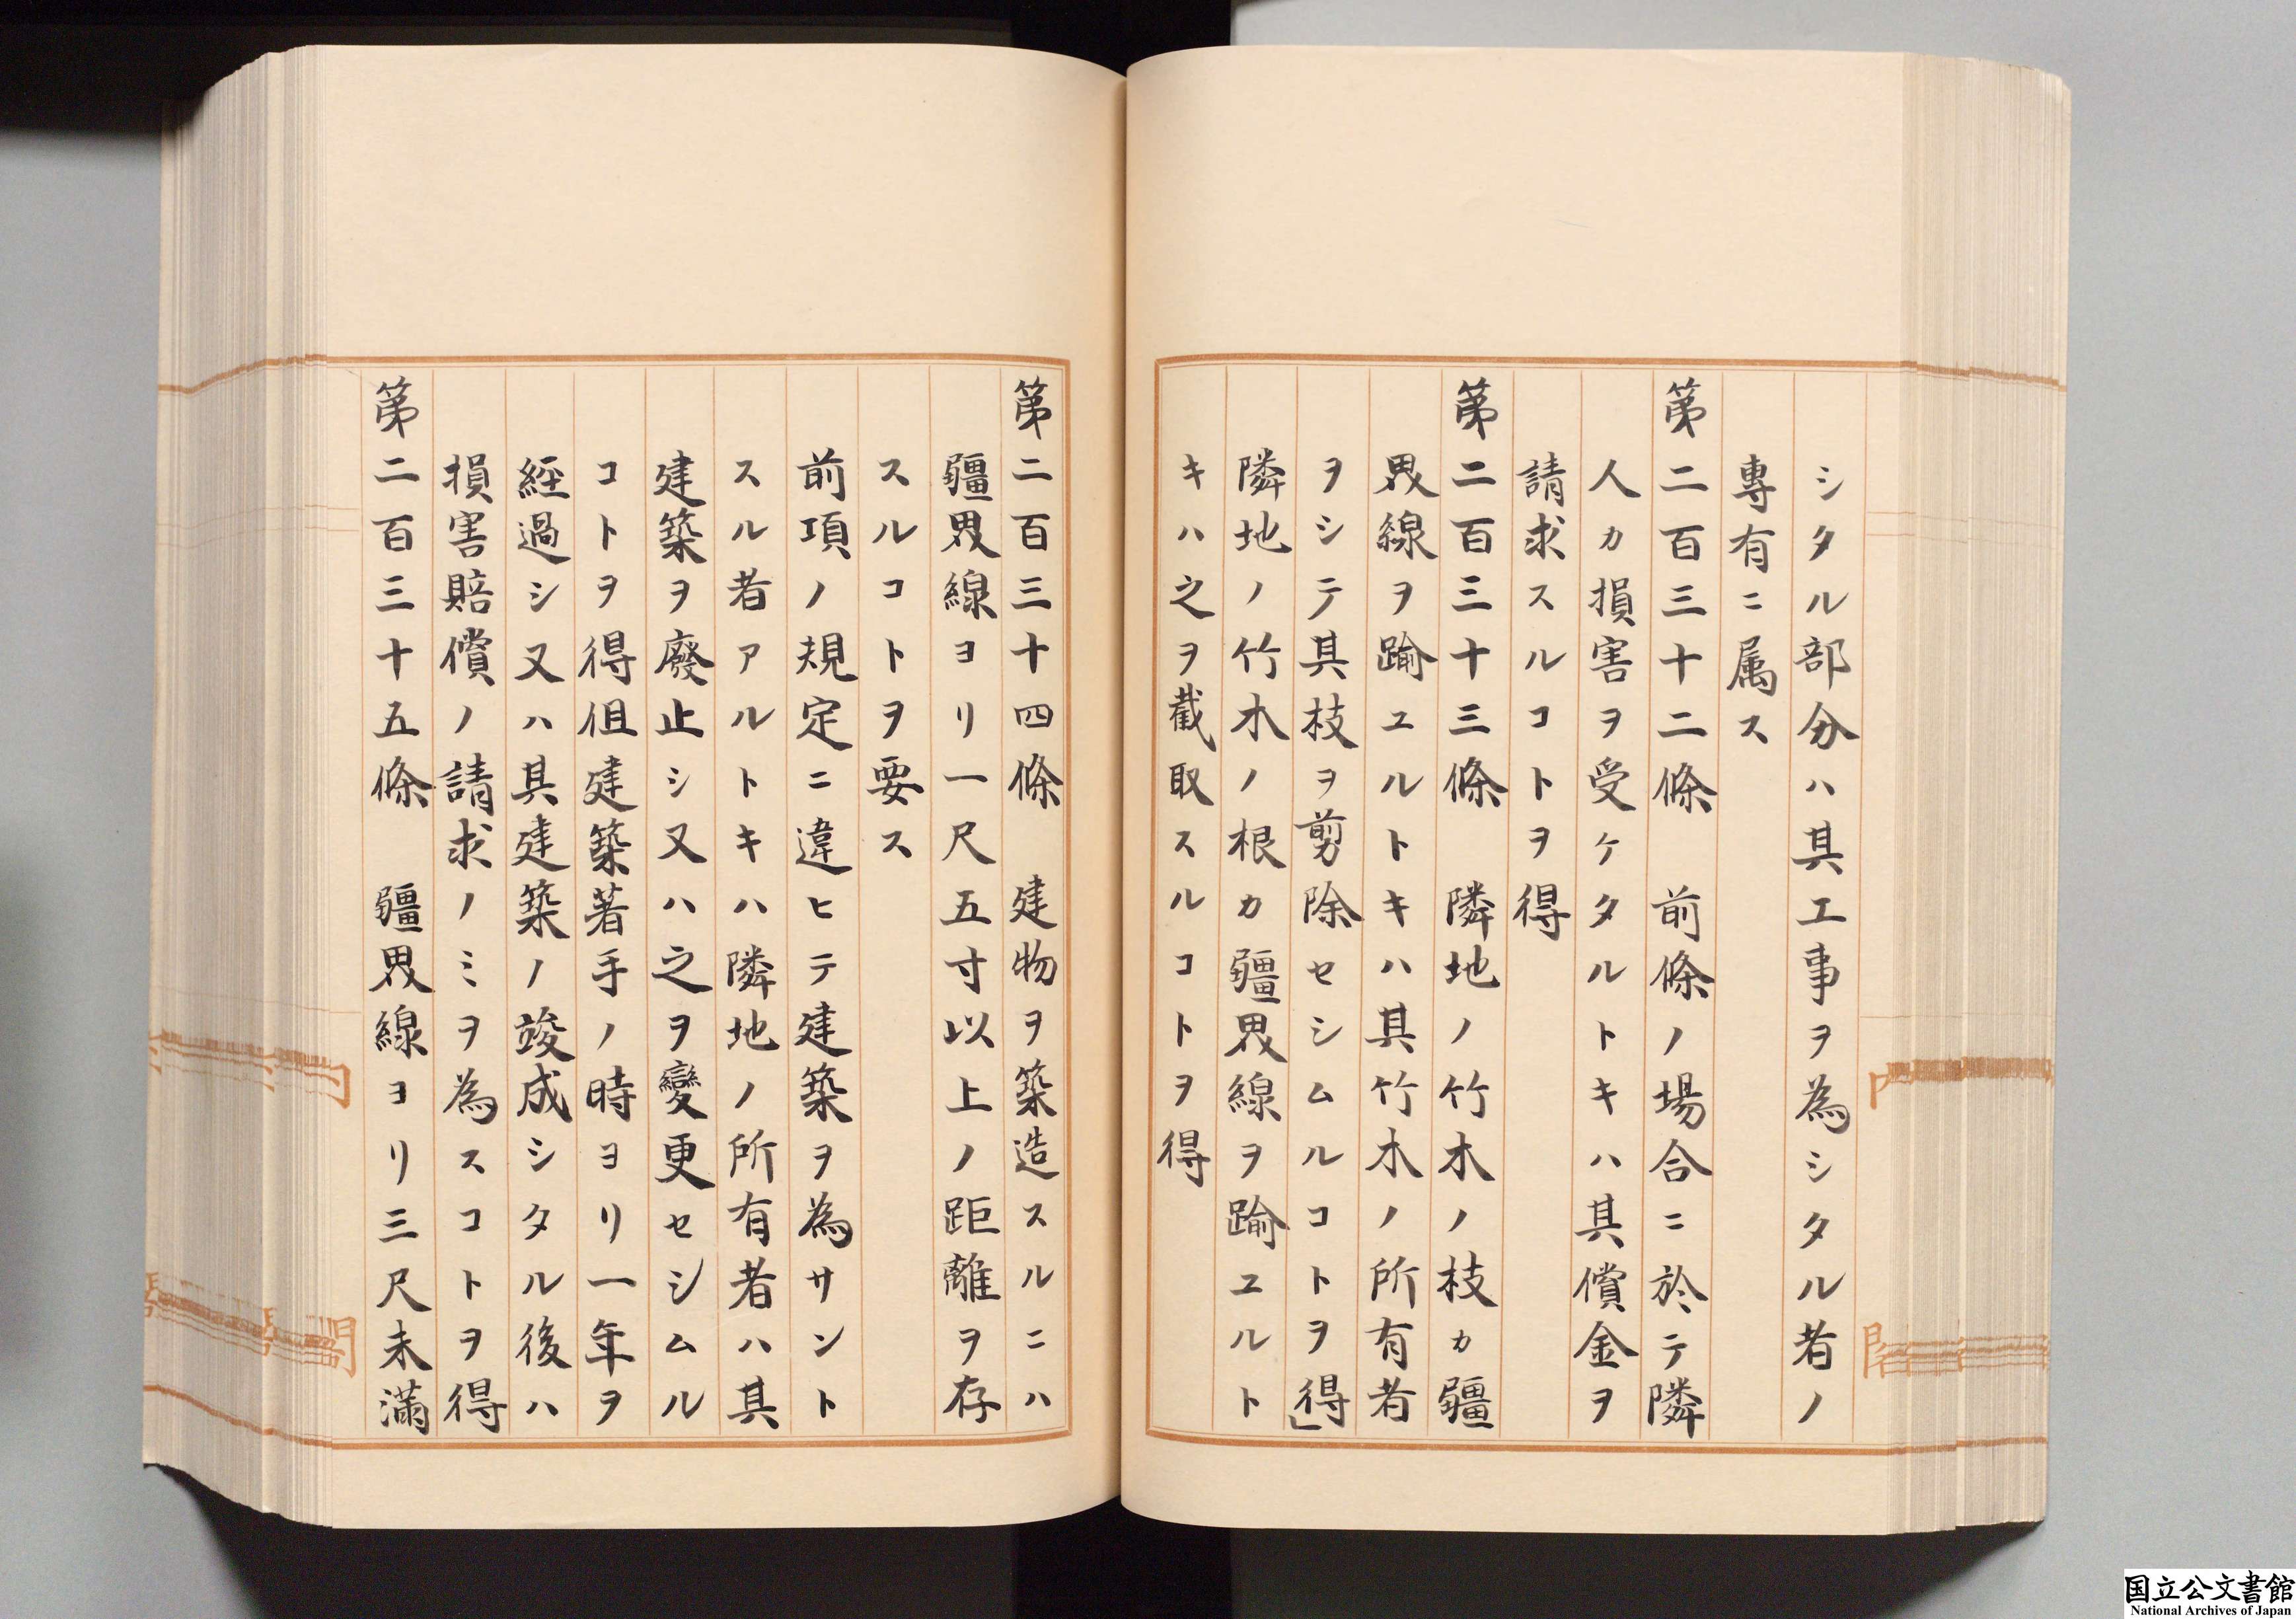 シタル部分ハ其工事ヲ為シタル者ノ
專有ニ属ス
第二百三十二條　前條ノ場合ニ於テ隣
人カ損害ヲ受ケタルトキハ其償金ヲ
請求スルコトヲ得
第二百三十三條　隣地ノ竹木ノ枝カ疆
界線ヲ踰ユルトキハ其竹木ノ所有者
ヲシテ其枝ヲ剪除セシムルコトヲ得」
隣地ノ竹木ノ根カ疆界線ヲ踰ユルト
キハ之ヲ截取スルコトヲ得
第二百三十四條　建物ヲ築造スルニハ
疆界線ヨリ一尺五寸以上ノ距離ヲ存
スルコトヲ要ス
前項ノ規定ニ違ヒテ建築ヲ為サント
スル者アルトキハ隣地ノ所有者ハ其
建築ヲ廢止シ又ハ之ヲ變更セシムル
コトヲ得但建築著手ノ時ヨリ一年ヲ
經過シ又ハ其建築ノ竣成シタル後ハ
損害賠償ノ請求ノミヲ為スコトヲ得
第二百三十五條　疆界線ヨリ三尺未滿
国立公文書館
National Archives of Japan